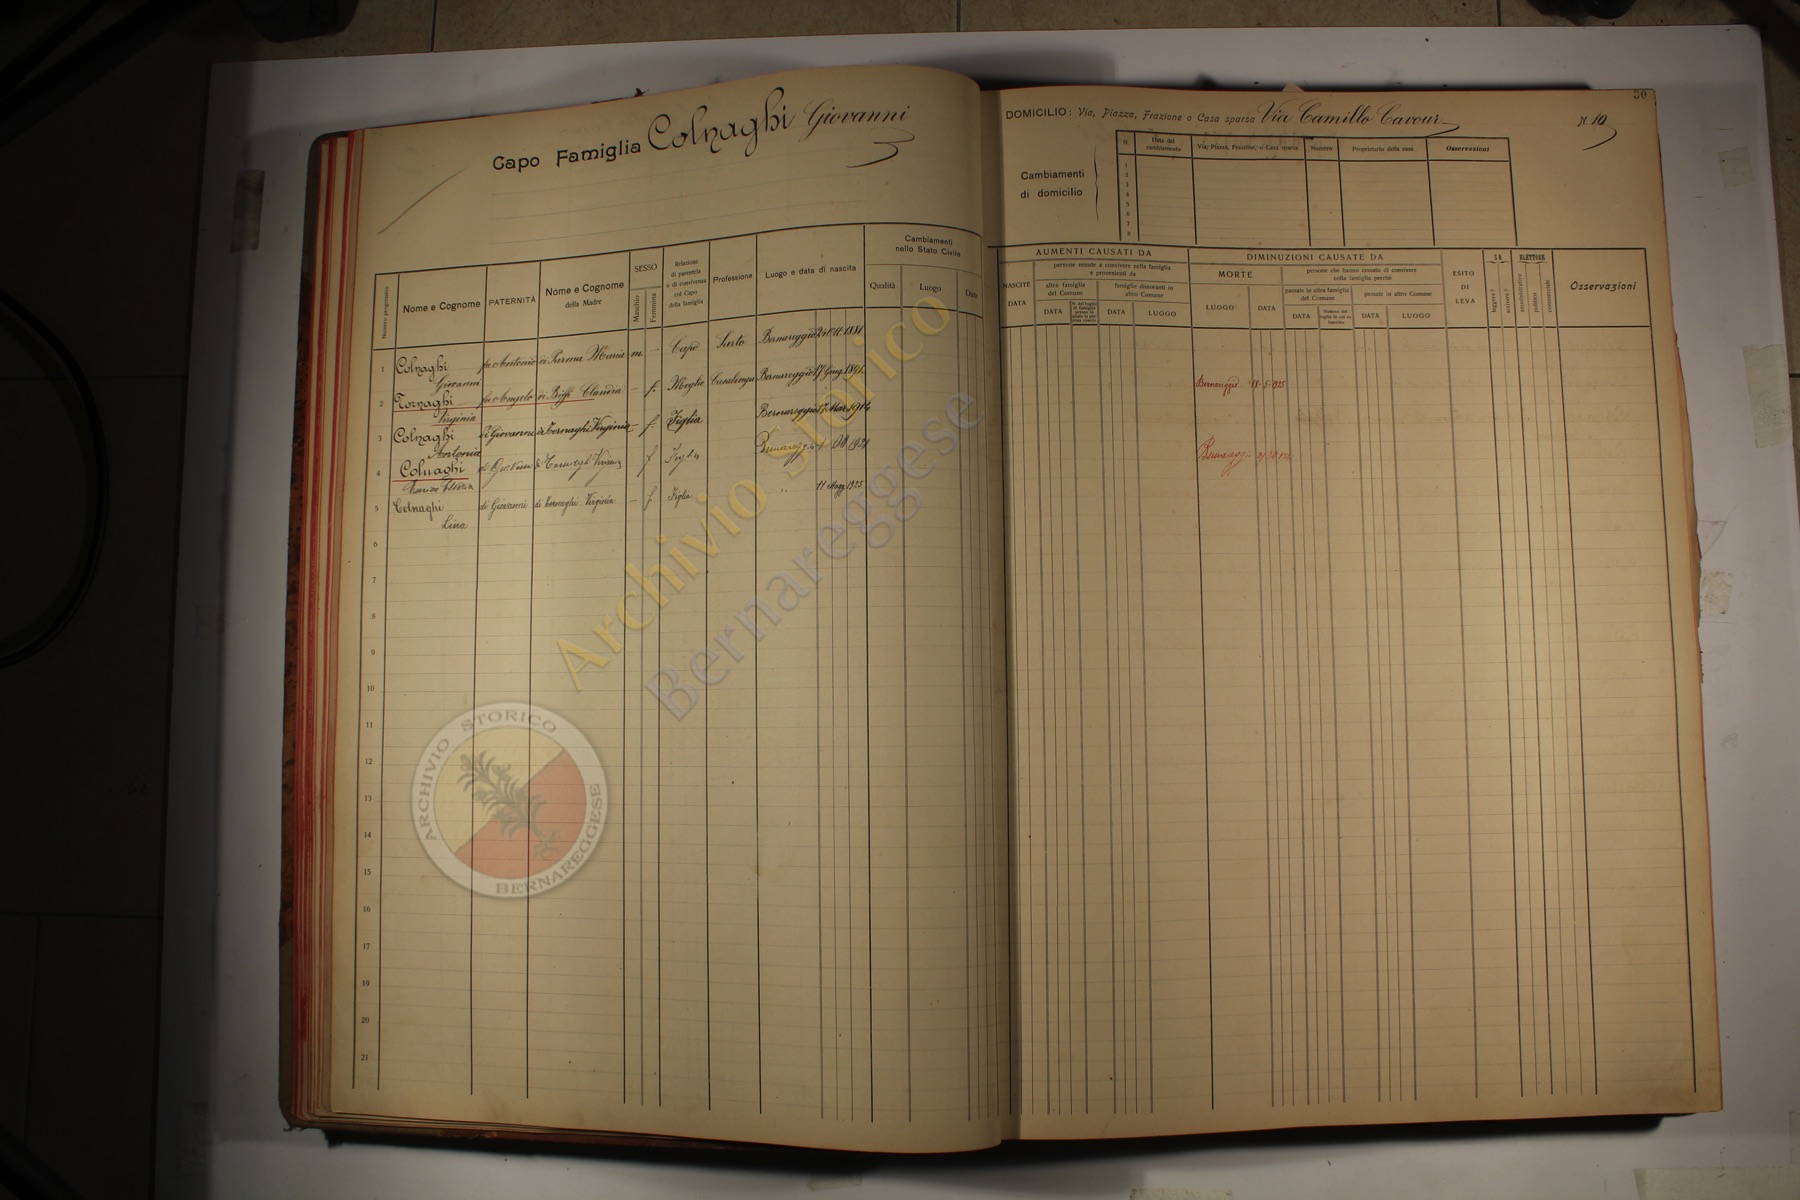 30
Capo Famiglia Colnaghi Giovanni
DOMICILIO: Via, Piazza, Frazione o Casa sparsa Via Camillo Cavour N. 10
Cambiamenti
di domicilio
N. Data del cambiamento Via, Piazza, Frazione, o Casa sparsa Numero Proprietario della casa Osservazioni
1
2
3
4
5
6
7
8
Numero progressivo Nome e Cognome PATERNITÀ Nome e Cognome della Madre SESSO Maschio Femmina Relazione di parentela o di convivenza col Capo della famiglia Professione Luogo e data di nascita Cambiamenti nello Stato Civile Qualità Luogo Data
AUMENTI CAUSATI DA
NASCITE DATA
persone venute a convivere nella famiglia e provenienti da
altra famiglia del Comune DATA
famiglie dimoranti in altro Comune DATA LUOGO
DIMINUZIONI CAUSATE DA
MORTE LUOGO DATA
persone che hanno cessato di convivere colla famiglia perchè
passate in altra famiglia del Comune DATA
passate in altro Comune DATA LUOGO
ESITO DI LEVA
SA leggere? scrivere?
ELETTORE amministrativo politico commerciale
Osservazioni
1 Colnaghi Giovanni fu Antonio di Parma Maria m. - Capo Sarto Bernareggio 1881
2 Tornaghi Virginia fu Angelo di Biffi Claudia - f. Moglie Casalinga Bernareggio 17 Giug. 1891 Bernareggio 18-5-1925
3 Colnaghi Antonia di Giovanni di Tornaghi Virginia - f. Figlia Bernareggio 17 Mar. 1916
4 Colnaghi di f Figlia
5 Colnaghi Lina di Giovanni di Tornaghi Virginia - f. Figlia " 11 Magg. 1925
6
7
8
9
10
11
12
13
14
15
16
17
18
19
20
21
Archivio Storico
Bernareggese
ARCHIVIO STORICO
BERNAREGGESE